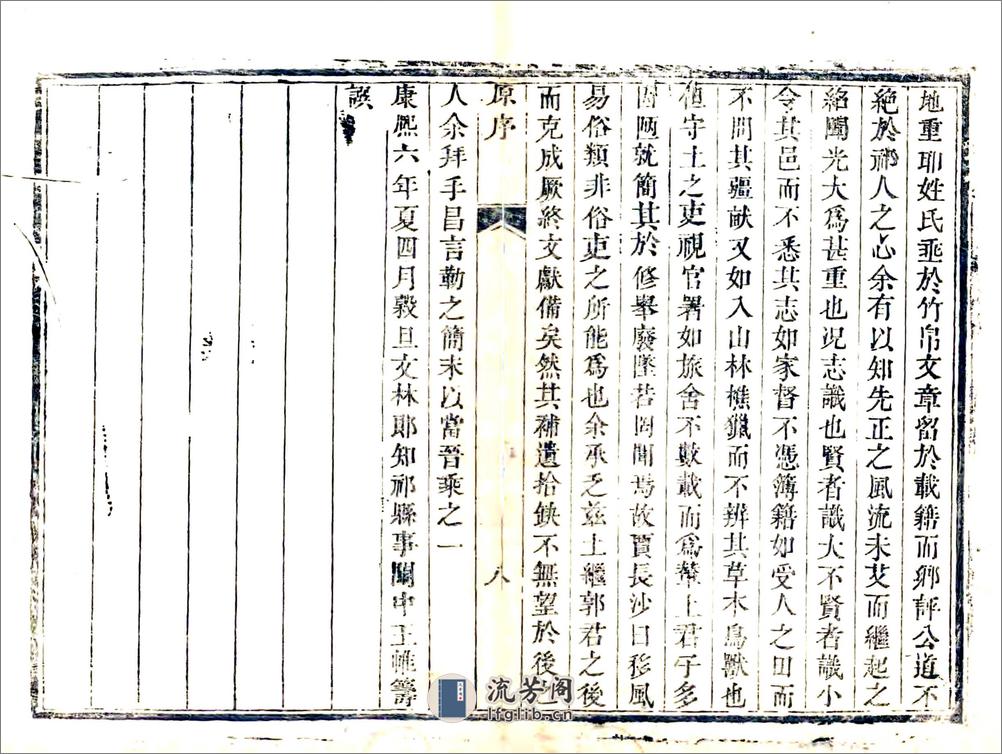 地重耶姓氏垂於竹帛文章留於載籍而鄉評公道不
絶於祁人之心余有以知先正之風流未艾而繼起之
絶聞光大爲甚重也况志識也賢者識大不賢者識小
令其邑而不悉其志如家督不憑簿籍如受人之田而
不問其疆献又如入山林樵獵而不辨其草木鳥獸也
守土之吏視官署如旅舍不數載而爲去君子多
因陋就簡其於修舉廢墜若罔聞焉故賈長沙曰移風
易俗類非俗吏之所能爲也余承乏兹土繼郭君之後
而克成厥終文獻備矣然其補遺拾缺不無望於後之
原序
八
人余拜手昌言勒之簡末以當晉乘之一
康熙六年夏四月穀旦文林郎知祁縣事關中王惟籌
譔
流芳阁
lfglib.cn